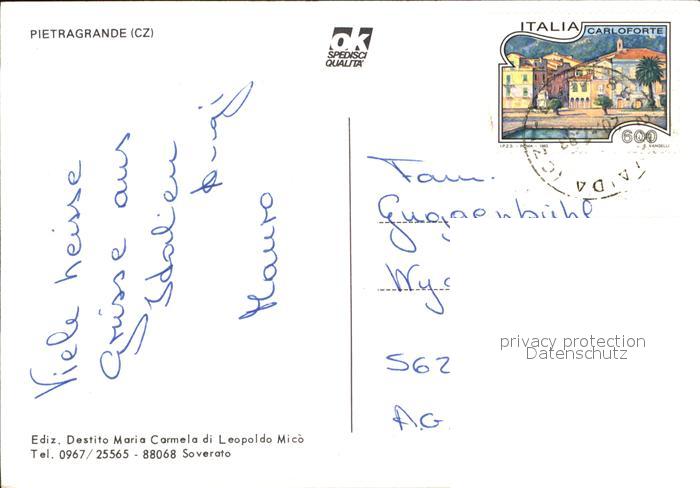 PIETRAGRANDE (CZ)
ok
SPEDISCI
QUALITA'
ITALIA
CARLOFORTE
600
I.P.Z.S. - ROMA - 1993
E. VANGELLI
Viele heisse
Grüsse aus
Italien
Mauro
Fam.
Guggenbühl
Wyg
562
AG
privacy protection
Datenschutz
Ediz. Destito Maria Carmela di Leopoldo Micò
Tel. 0967/25565 - 88068 Soverato